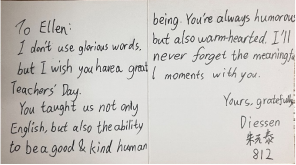 To Ellen:
I don't use glorious words,
but I wish you have a great
Teachers' Day.
You taught us not only
English, but also the ability
to be a good & kind human
being. You're always humorous
but also warm-hearted. I'll
never forget the meaningful
moments with you.
Yours, gratefully
Diessen
812